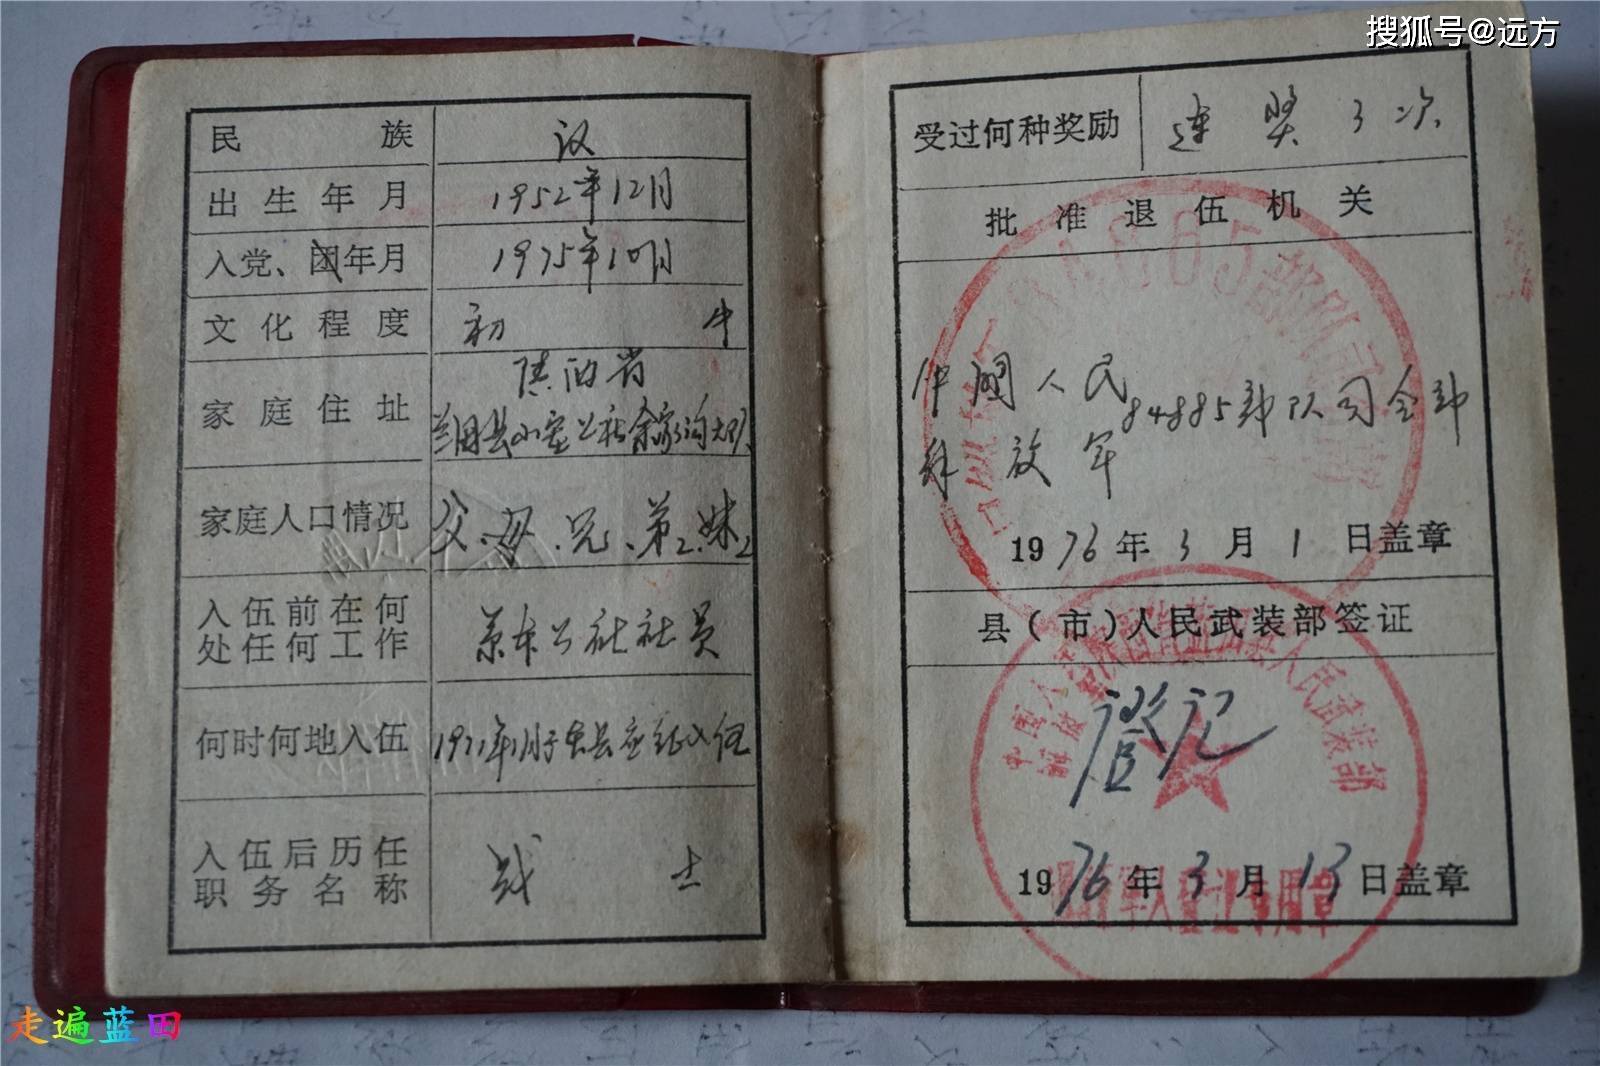 搜狐号@远方
民族 汉
出生年月 1952年12月
入党、团年月 1975年10月
文化程度 初中
家庭住址 陕西省
兰田县小寨公社余家沟大队
家庭人口情况 父、母、兄、弟2、妹2
入伍前在何
处任何工作
公社社员
何时何地入伍
入伍后历任
职务名称
战士
受过何种奖励 连奖3次
批准退伍机关
中国人民
解放军
84885部队司令部
1976年3月1日盖章
县(市)人民武装部签证
登记
1976年3月13日盖章
走遍蓝田